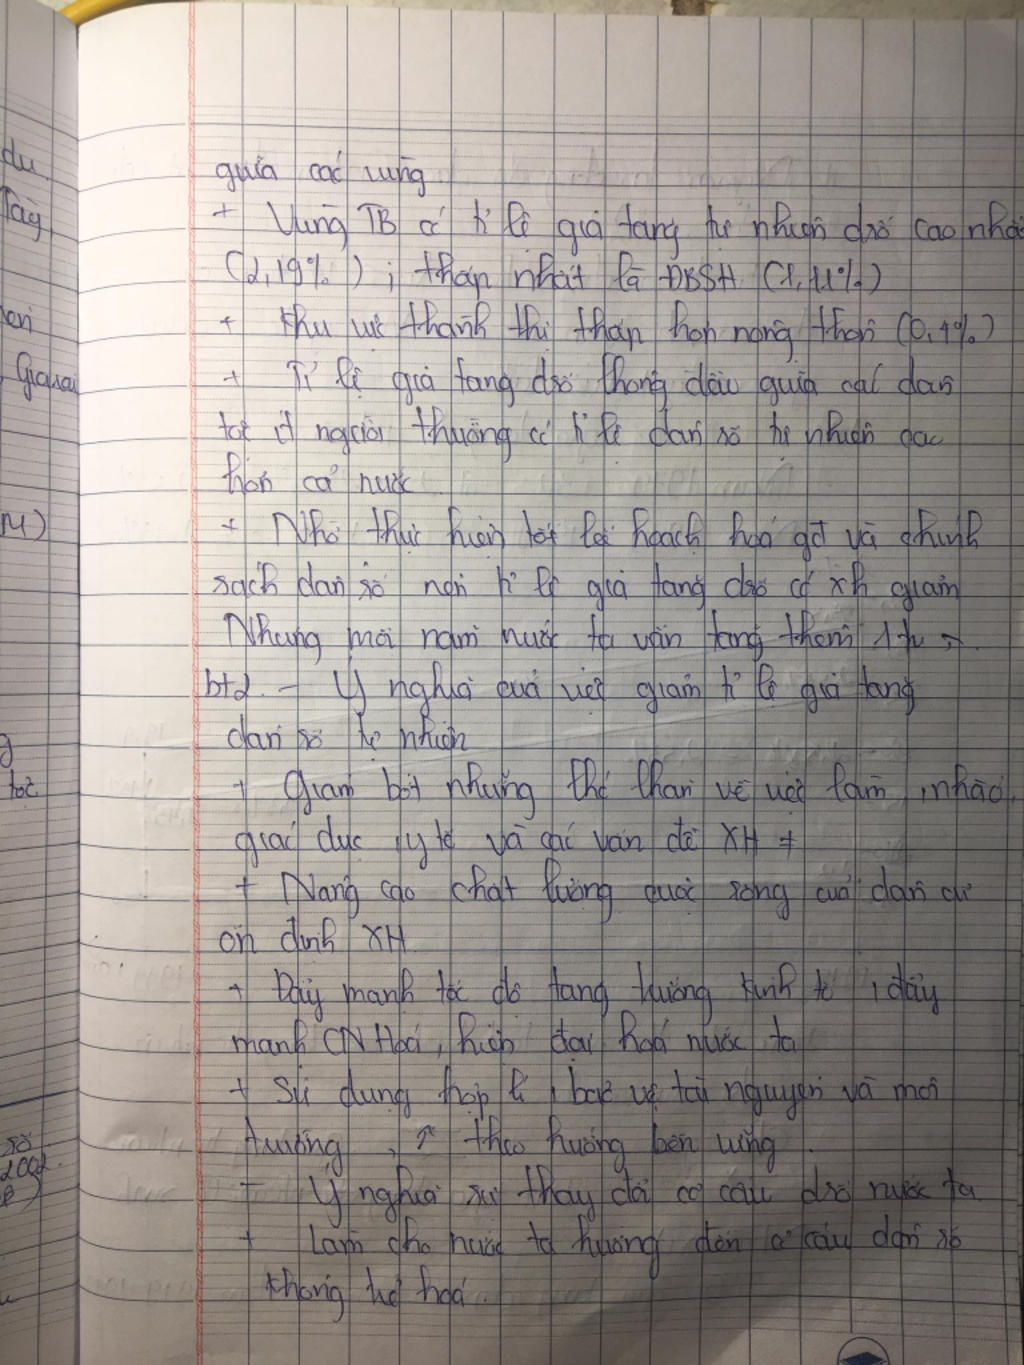 du.
Tày
giữa các vùng
+ Vùng TB có tỉ lệ gia tăng tự nhiên dsố cao nhất
(2,19%) ; thấp nhất là ĐBSH (1,11%)
+ Khu vực thành thị thấp hơn nông thôn (0,4%)
Giarai
+ Tỉ lệ gia tăng dsố không đều giữa các dân
tộc ít người thường có tỉ lệ dân số tự nhiên cao
hơn cả nước
+ Nhờ thực hiện tốt kế hoạch hoá gđ và chính
sách dân số nên tỉ lệ gia tăng dsố có xh giảm
Nhưng mỗi năm nước ta vẫn tăng thêm 1tr
bt2. - Ý nghĩa của việc giảm tỉ lệ gia tăng
dân số tự nhiên
tộc
+ Giảm bớt những khó khăn về việc làm , nhà ở,
giáo dục , y tế và các vấn đề XH
+ Nâng cao chất lượng cuộc sống của dân cư
ổn định XH
+ Đẩy mạnh tốc độ tăng trưởng kinh tế , đẩy
mạnh CN Hoá , hiện đại hoá nước ta
+ Sử dụng hợp lí , bảo vệ tài nguyên và môi
trường , ↗ theo hướng bền vững .
số
200
- Ý nghĩa sự thay đổi cơ cấu dsố nước ta
+ Làm cho nước ta hướng đến cơ cấu dân số
không trẻ hoá .